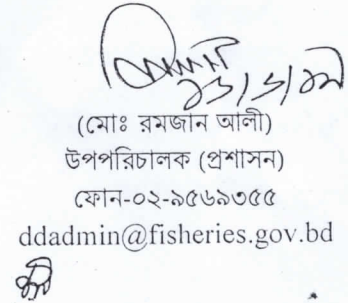 (মোঃ রমজান আলী)
উপপরিচালক (প্রশাসন)
ফোন-০২-৯৫৬৯৩৫৫
ddadmin@fisheries.gov.bd